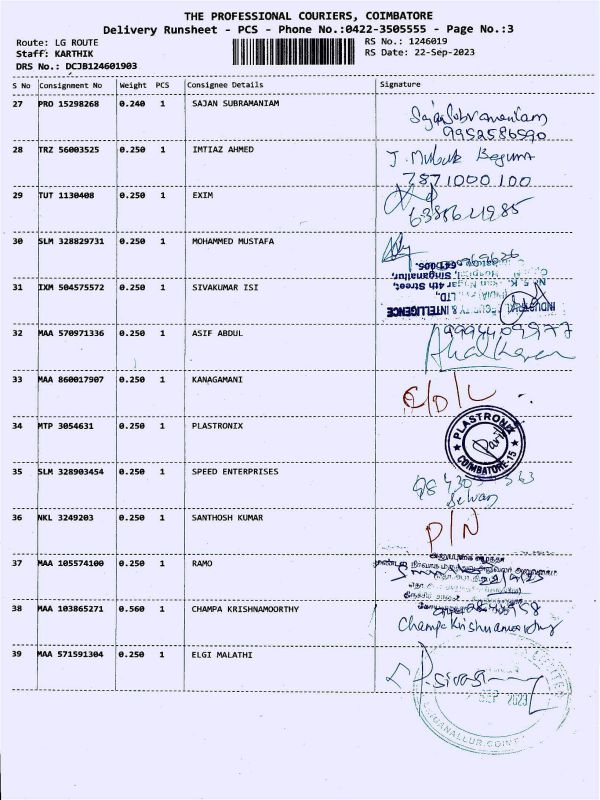 THE PROFESSIONAL COURIERS, COIMBATORE
Delivery Runsheet - PCS - Phone No.:0422-3505555 - Page No.:3
Route: LG ROUTE RS No.: 1246019
Staff: KARTHIK RS Date: 22-Sep-2023
DRS No.: DCJB124601903
S No Consignment No Weight PCS Consignee Details Signature
27 PRO 15298268 0.240 1 SAJAN SUBRAMANIAM
Sajan Subramaniam
9952586590
28 TRZ 56003525 0.250 1 IMTIAZ AHMED
J. Mubak Begum
7871000100
29 TUT 1130408 0.250 1 EXIM
30 SLM 328829731 0.250 1 MOHAMMED MUSTAFA
31 IXM 504575572 0.250 1 SIVAKUMAR ISI
Singanallur,
4th Street,
LTD,
& INTELLIGENCE
32 MAA 570971336 0.250 1 ASIF ABDUL
33 MAA 860017907 0.250 1 KANAGAMANI
34 MTP 3054631 0.250 1 PLASTRONIX
PLASTRONIX
COIMBATORE-15
35 SLM 328903454 0.250 1 SPEED ENTERPRISES
Selvan
36 NKL 3249203 0.250 1 SANTHOSH KUMAR
P/N
37 MAA 105574100 0.250 1 RAMO
38 MAA 103865271 0.560 1 CHAMPA KRISHNAMOORTHY
Champa Krishnamoorthy
39 MAA 571591304 0.250 1 ELGI MALATHI
SEP 2023